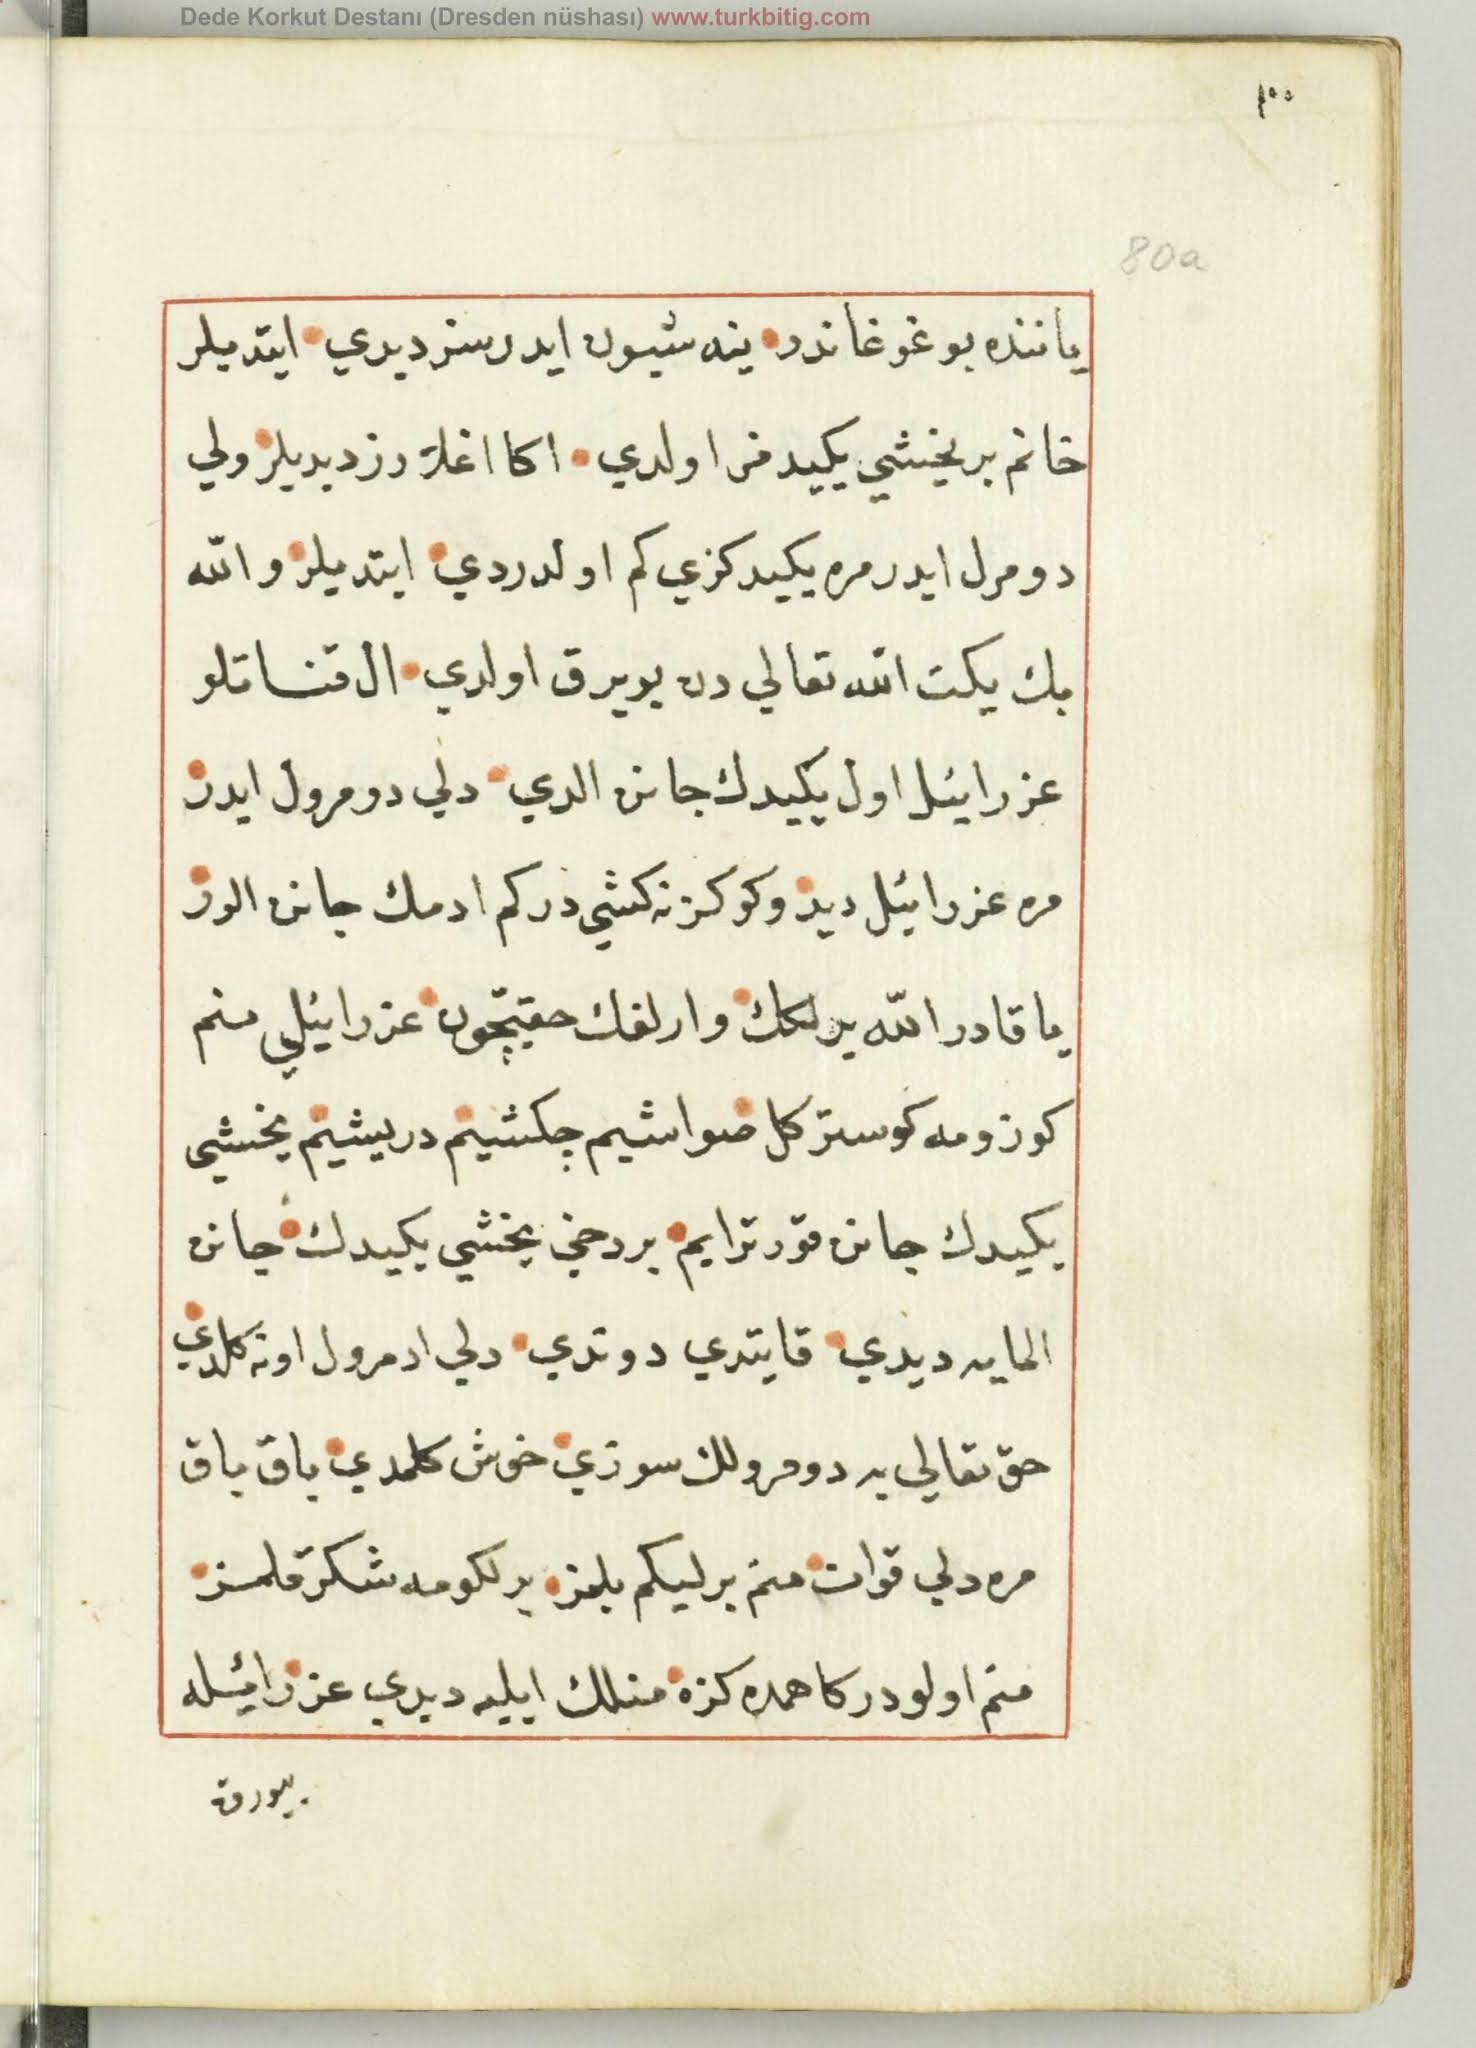 Dede Korkut Destanı (Dresden nüshası) www.turkbitig.com
80a
ياننده بو غوغا ندر ينه شيون ايدرسز ديدي ايتديلر
خانم بر يخشي يكيدمز اولدي اكا اغلرز ديديلر ولي
دومرل ايدر مره يكيدكزي كم اولدردي ايتديلر والله
بك يكت الله تعالي دن بويرق اولدي ال قناتلو
عزرائيل اول يكيدك جانن الدي دلي دومرول ايدر
مره عزرائيل ديدوكوكز نه كشي در كم ادمك جانن الور
يا قادر الله برلكك وارلغك حقيچون عزرائيلي منم
كوزومه كوستر كل صواشيم چكشيم دريشيم يخشي
يكيدك جانن قورترايم بر دخي يخشي يكيدك جانن
الميه ديدي قايتدي دوندي دلي ادمرول اونه كلدي
حق تعالي يه دومرولك سوزي خوش كلمدي باق باق
مره دلي قوات منم برليكم بلمز برلكومه شكر قلمز
منم اولو دركاهمده كزه منلك ايليه ديدي عزرائيله
بيورق